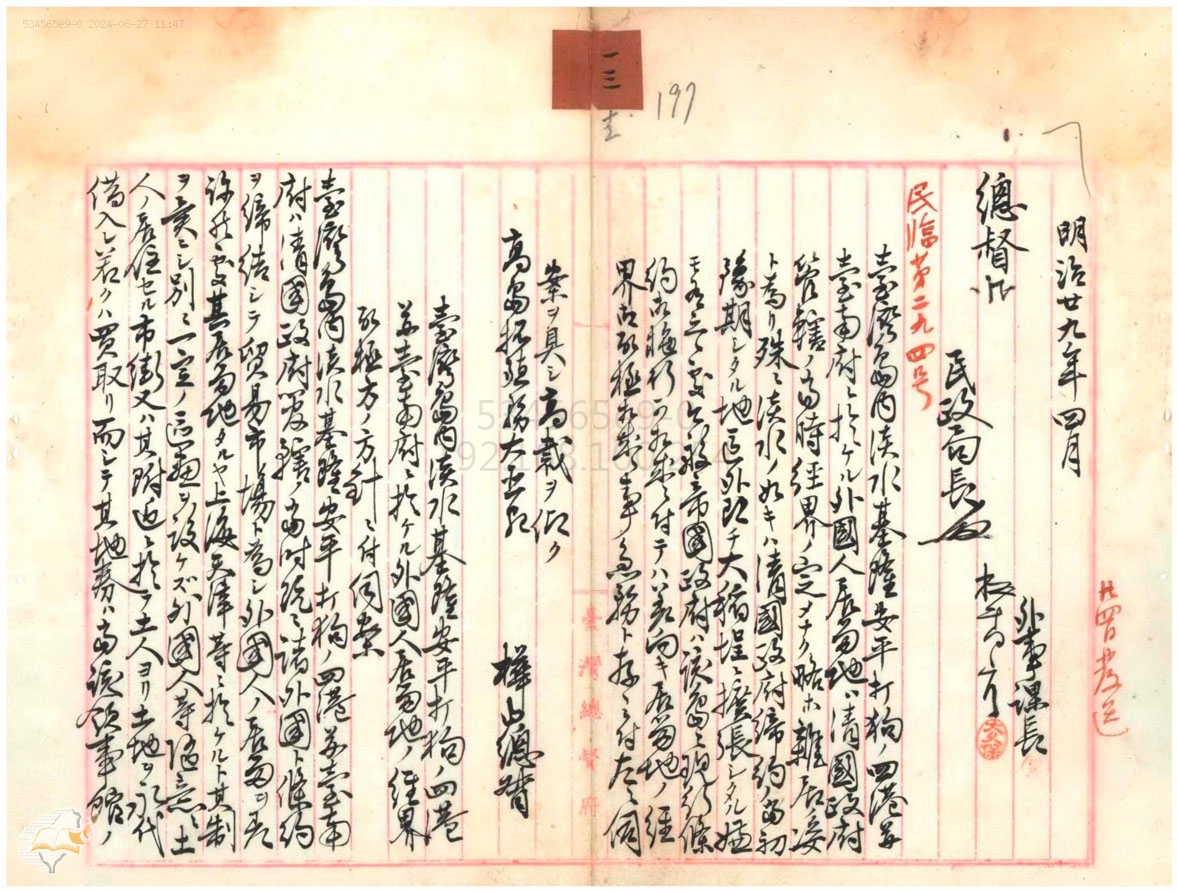 53456589-0 2024-06-27 11:47
一三
197
明治廿九年四月
總督
民政局長
外事課長
民臨第二九四号
臺灣島内淡水基隆安平打狗ノ四港并
臺南府ニ於ケル外國人居留地ハ清國政府
管轄ノ当時経界ノ定メナク略ホ雜居ノ姿
ト為リ殊ニ淡水ノ如キハ清國政府締約ノ当初
豫期シタル地區外即チ大稻埕ニ擴張シタル
帝國政府ハ該島ニ現行條
約ヲ施行
居留地ノ経
界ヲ
急務ト存シ付左ニ伺
案ヲ具シ高裁ヲ仰ク
高島拓殖務大臣宛
樺山總督
臺灣島内淡水基隆安平打狗ノ四港
并臺南府ニ於ケル外國人居留地ノ経界
取極方ノ方針ニ付伺案
臺灣島内淡水基隆安平打狗ノ四港并臺南
府ハ清國政府管轄ノ当時既ニ諸外國ト條約
ヲ締結シテ貿易市場ト為シ外國人ノ居留ヲ
其居留地タルヤ上海天津等ニ於ケルト其制
ヲ異ニシ別ニ一定ノ區劃ヲ設ケズ外國人等随意ニ土
人ノ居住セル市街又ハ其附近ニ於テ土人ヨリ土地ヲ永代
借入レ若クハ買取リ而シテ其地券ハ当該領事館ノ
臺灣總督府
53456589-0